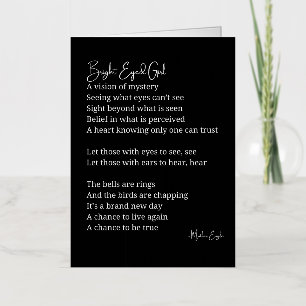 Bright Eyed Girl
A vision of mystery
Seeing what eyes can't see
Sight beyond what is seen
Belief in what is perceived
A heart knowing only one can trust
Let those with eyes to see, see
Let those with ears to hear, hear
The bells are rings
And the birds are chapping
It's a brand new day
A chance to live again
A chance to be true